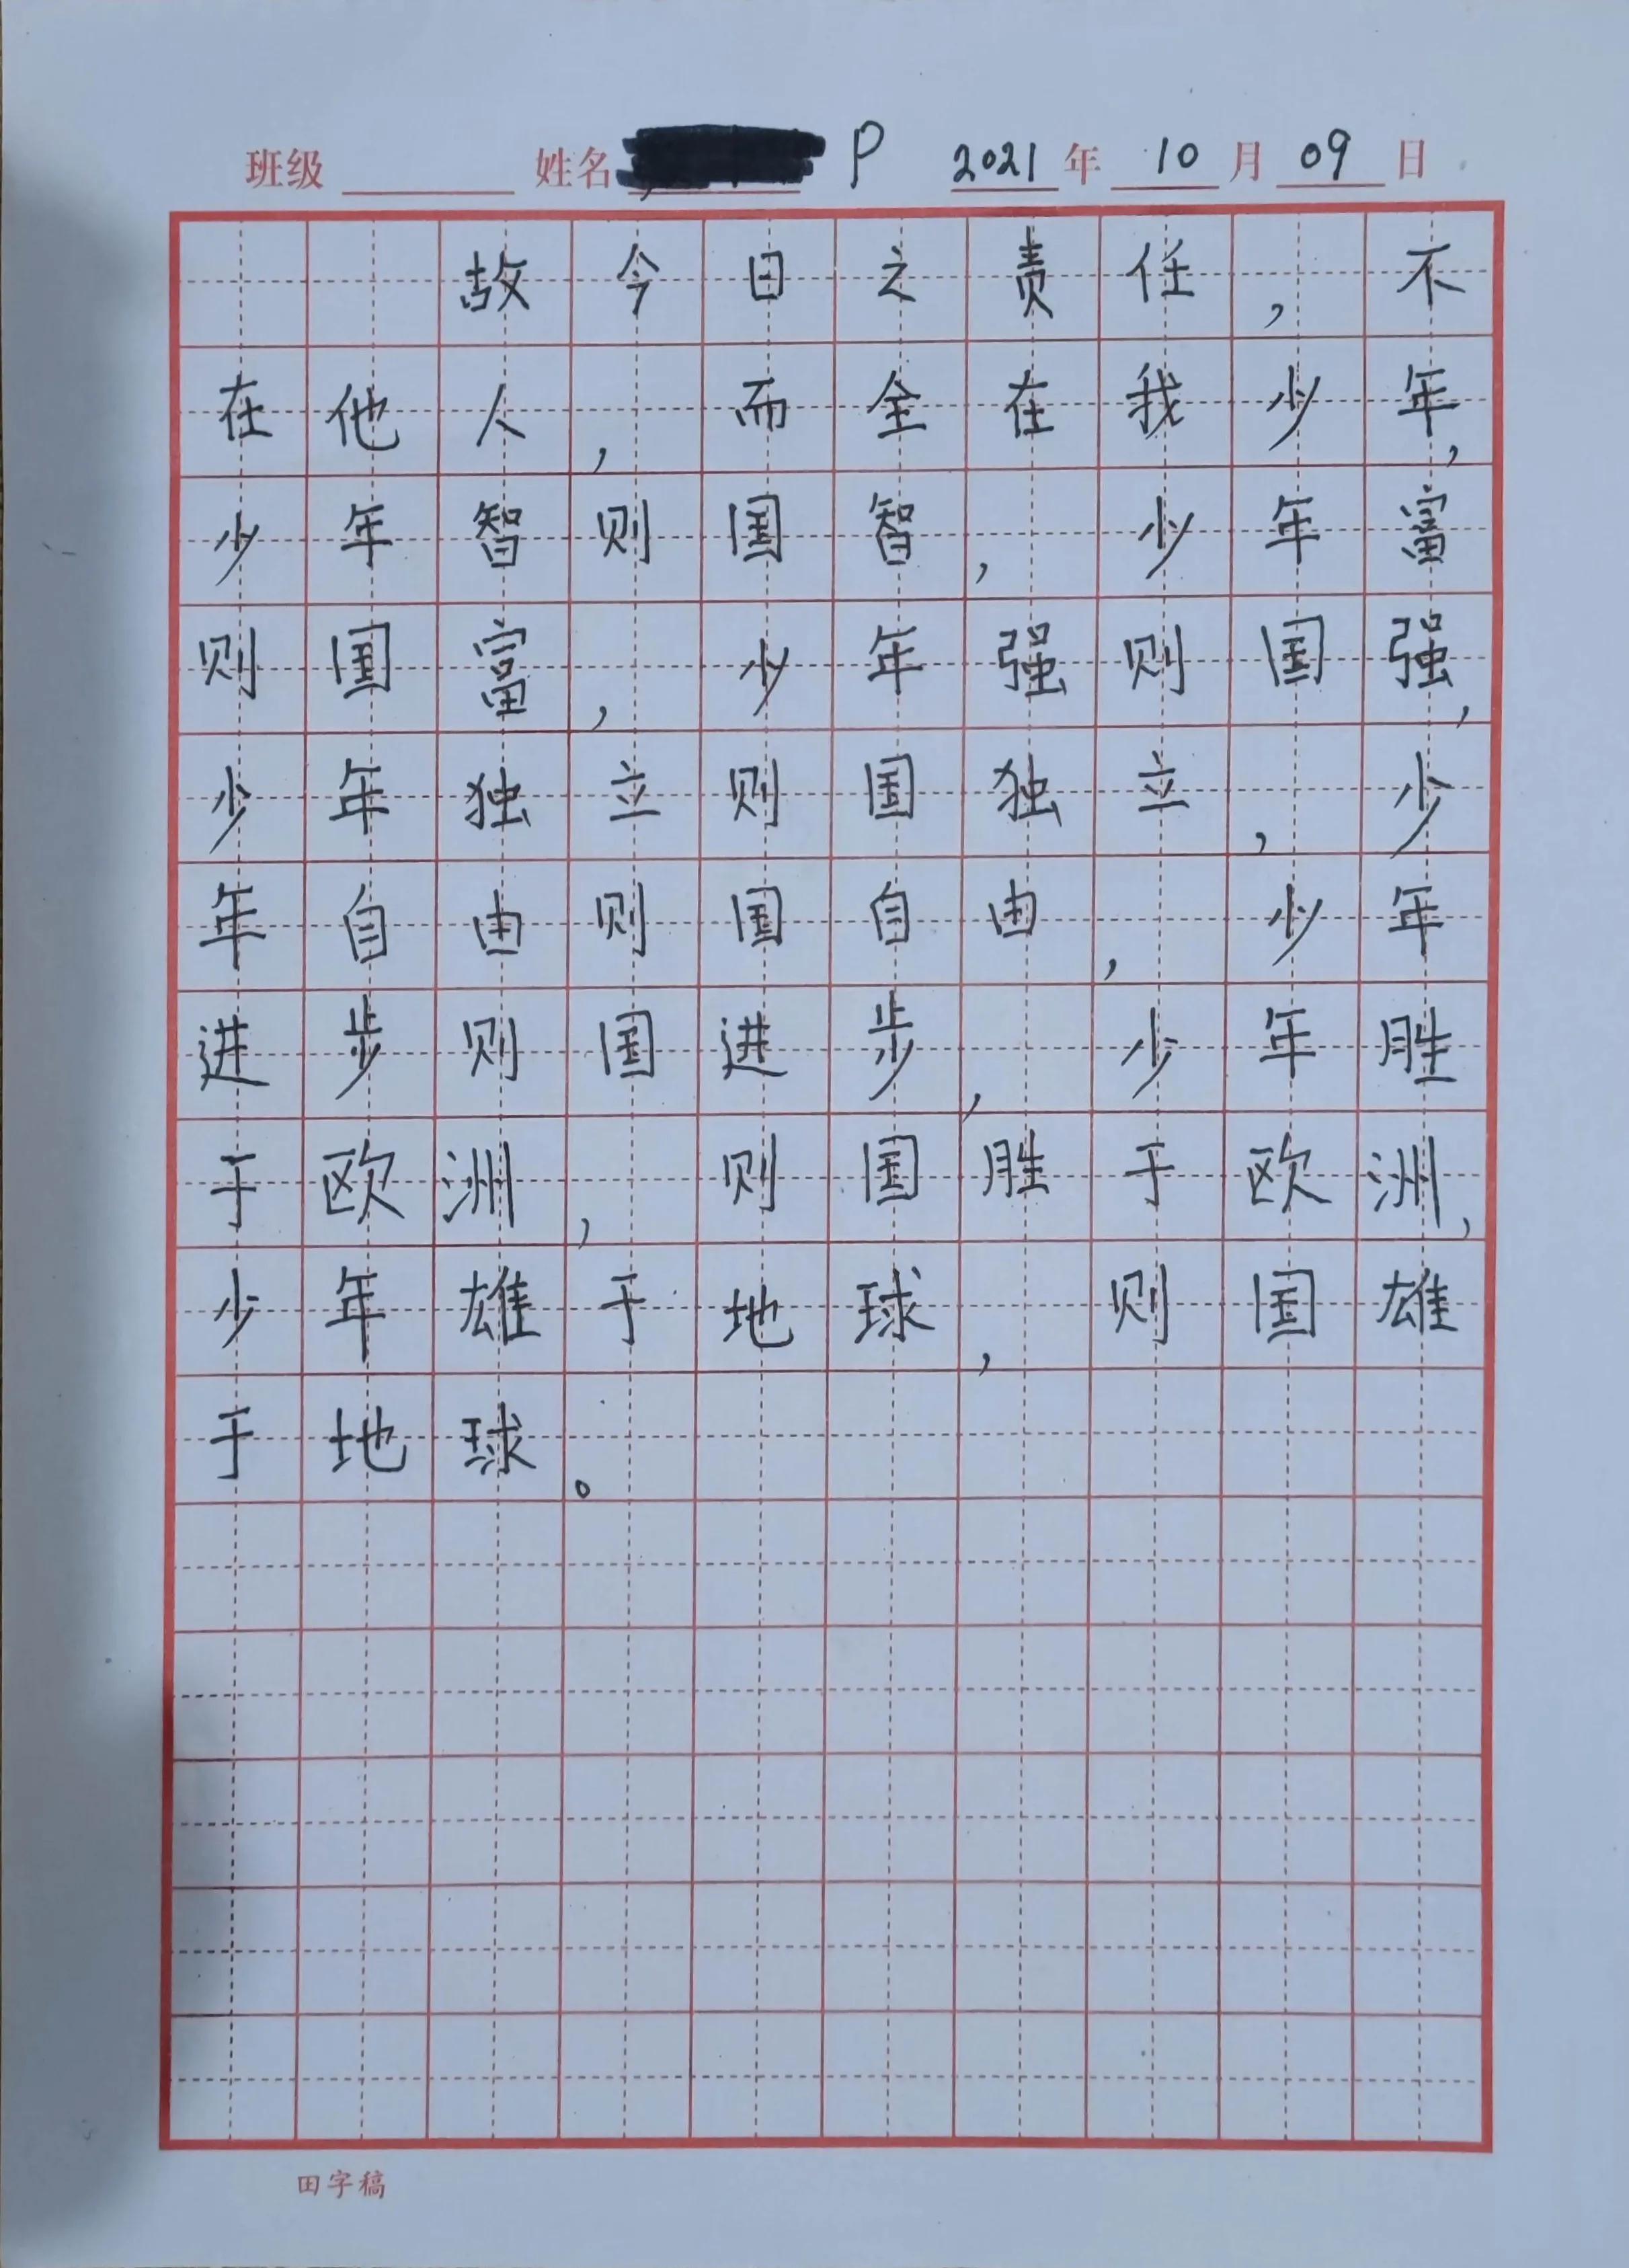 班级 姓名 P 2021年10月09日
故今日之责任,不
在他人,而全在我少年,
少年智则国智,少年富
则国富,少年强则国强,
少年独立则国独立,少
年自由则国自由,少年
进步则国进步,少年胜
于欧洲,则国胜于欧洲,
少年雄于地球,则国雄
于地球。
田字稿